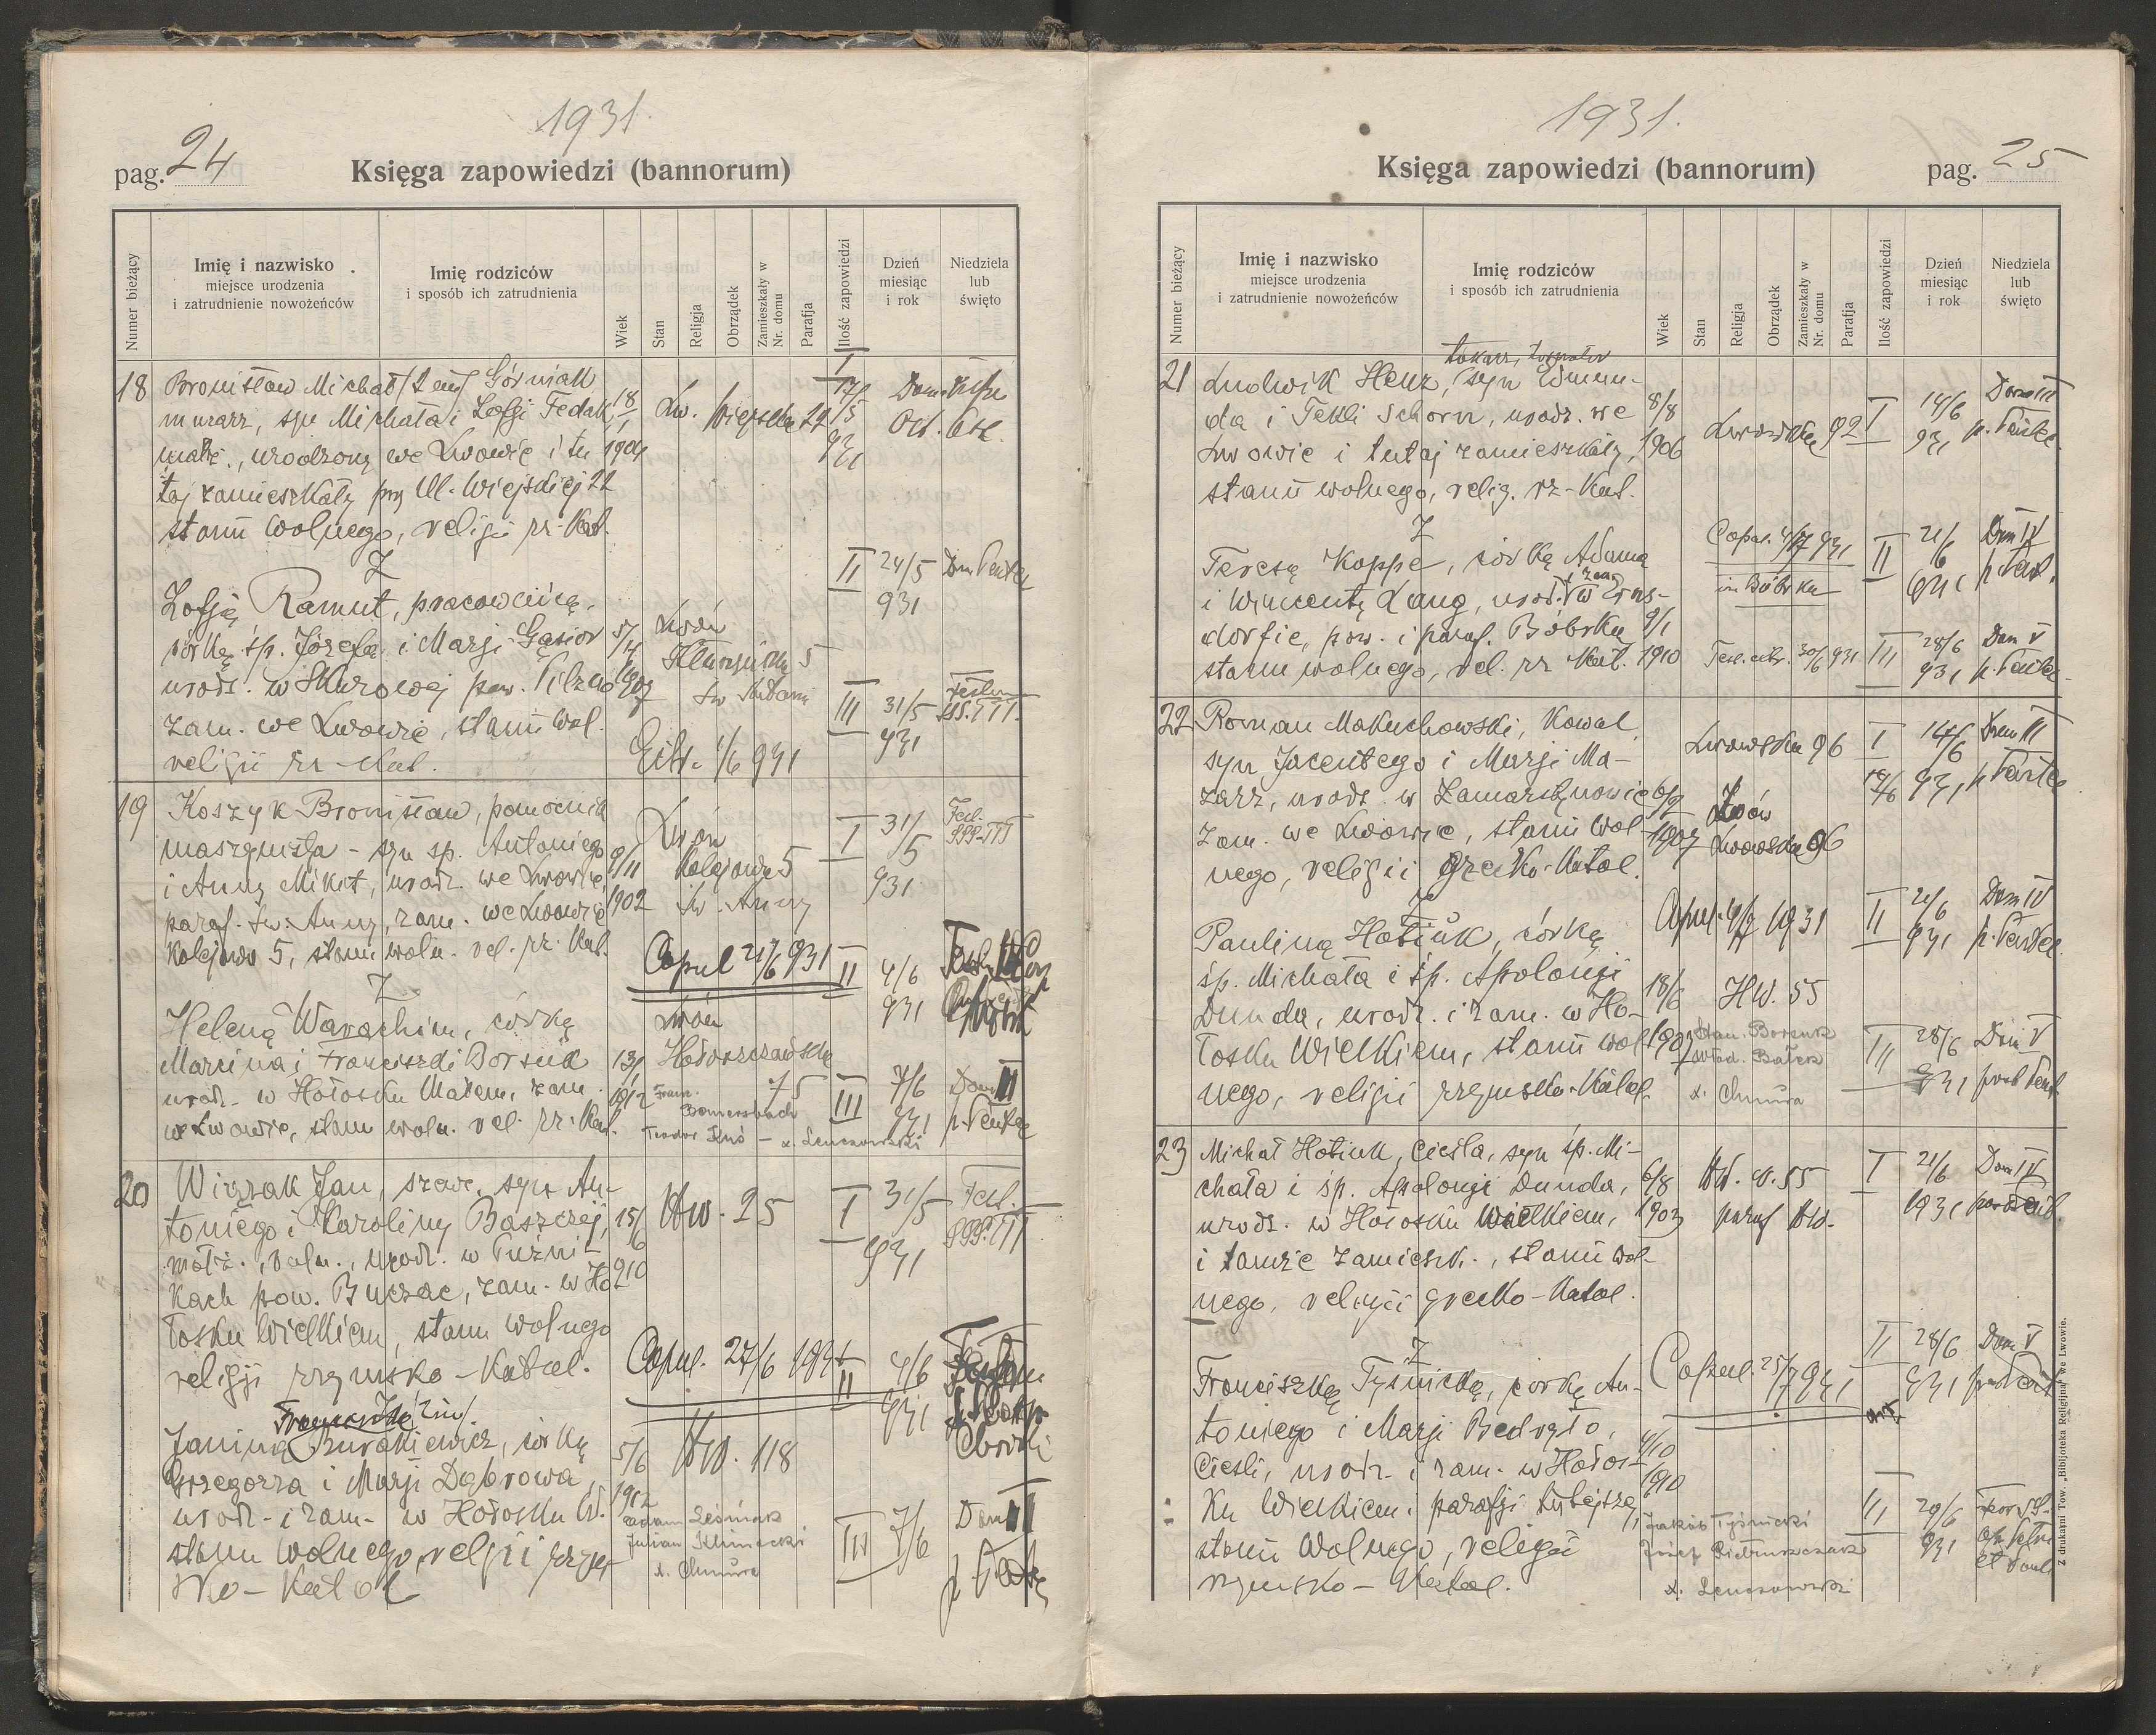 1931.
pag. 24
Księga zapowiedzi (bannorum)
Numer bieżący
Imię i nazwisko
miejsce urodzenia
i zatrudnienie nowożeńców
Imię rodziców
i sposób ich zatrudnienia
Wiek
Stan
Religja
Obrządek
Zamieszkały w
Nr. domu
Parafja
Ilość zapowiedzi
Dzień
miesiąc
i rok
Niedziela
lub
święto
18 Bronisław Michał Górniak
murarz, syn Michała i Zofji Fedak,
małż., urodzony we Lwowie i tu
taj zamieszkały przy Ul. Wiejskiej 22
stanu wolnego, religii rz-Kat.
18/1 1904
Lw. Wiejska 22
I 17/5 931
Z
Zofją Ramut, pracownicą,
córką śp. Józefa i Marji Gąsior
urodz. w Skurowej pow. Pilzno
zam. we Lwowie, stanu wol.
religii rz-Kat.
5/4 1907
Lwów
5
II 24/5 931 Dom Pentec
III 31/5 931 Festum SS. TTT.
1/6 931
19 Koszyk Bronisław, pomocnik
maszynisty - syn śp. Antoniego
i Anny Mikit, urodz. we Lwowie,
paraf. Św. Anny, zam. we Lwowie
Kolejowa 5, stanu woln. rel. rz. Kat.
9/11 1902
Lwów
Kolejowa 5
Św. Anny
I 31/5 931 Fest. SSS. TTT
Copul 21/6 931
II 4/6 931
Z
Heleną Warachim, córką
Marcina i Franciszki Borsuk
urodz. w Hołosku Małem, zam.
we Lwowie, stanu woln. rel. rz. Kat.
13/1 1912
Lwów
75
III 7/6 931 Dom II p. Pentec
20 Wiązak Jan, szewc, syn An-
toniego i Karoliny Baszczej,
małż., urodz. w Puźni-
kach pow. Buczac, zam. w Ho
łosku Wielkiem, stanu wolnego
religii rzymsko-Katol.
15/6 910
Hw. 25
I 31/5 931 Fest. SSS. TTT
Copul. 27/6 1931
II 4/6 931
Z
Janiną Burakiewicz, córką
Grzegorza i Marji Dąbrowa,
urodz. i zam. w Hołosku W.
stanu wolnego, religii rzyms
Ko-Katol
5/6 1912
Hw. 118
Adam Leśniak
Julian
x. Chmura
III 7/6 Dom II
1931.
Księga zapowiedzi (bannorum)
pag. 25
Numer bieżący
Imię i nazwisko
miejsce urodzenia
i zatrudnienie nowożeńców
Imię rodziców
i sposób ich zatrudnienia
Wiek
Stan
Religja
Obrządek
Zamieszkały w
Nr. domu
Parafja
Ilość zapowiedzi
Dzień
miesiąc
i rok
Niedziela
lub
święto
tokarz,
21 Ludwik Henz, syn Edmun-
da i Tekli Schorn, urodz. we
Lwowie i tutaj zamieszkały,
stanu wolnego, relig. rz-Kat.
8/8 1906
Lwowska 92
I 14/6 931 Dom III p. Pentec.
Z
Teresą Koppe, córką Adama
i Wincenty Lang, urodz. i zam. w Erns-
dorfie, pow. i paraf. Bóbrka
stanu wolnego, rel. rz Kat.
9/1 1910
Copul. 4/7 931
in Bóbrka
II 21/6 931 Dom IV p. Pent.
30/6 931
III 28/6 931 Dom V p. Pentec.
22 Roman Makuchowski, Kowal
syn Jacentego i Marji Ma-
zarz, urodz. w Zamarstynowie
zam. we Lwowie, stanu wol-
nego, religii grecko-Katol.
6/9 1907
Lwowska 96
Lwów
Lwowska 96
I 14/6 931 Dom III p. Pentec
Z
Pauliną Hotiuk, córką
śp. Michała i śp. Apolonji
Dunda, urodz. i zam. w Ho-
łosku Wielkiem, stanu wol-
nego, religii rzymsko-Katol.
18/6 1907
Copul. 4/7 1931
HW. 55
Stan. Borsuk
Wład. Bałek
x. Chmura
II 21/6 931 Dom IV p. Pentec.
III 28/6 931 Dom V post Pent.
23 Michał Hotiuk, Cieśla, syn śp. Mi-
chała i śp. Apolonji Dunda,
urodz. w Hołosku Wielkiem,
i tamże zamieszk., stanu wol-
nego, religii grecko-Katol.
6/8 1903
HW. 55
paraf HW.
I 21/6 1931 Dom IV
Z
Franciszką Tyśnicką, córką An-
toniego i Marji Bedryło,
Cieśli, urodz. i zam. w Hołos-
ku Wielkiem, parafji tutejszej,
stanu wolnego, religii
rzymsko-Katol.
4/10 1910
Copul. 25/7 931
Jakób Tyśnicki
Józef Pietruszczak
x. Lenczowski
II 28/6 931 Dom V
III 29/6 931
Z drukarni Tow. „Bibljoteka Religijna" we Lwowie.